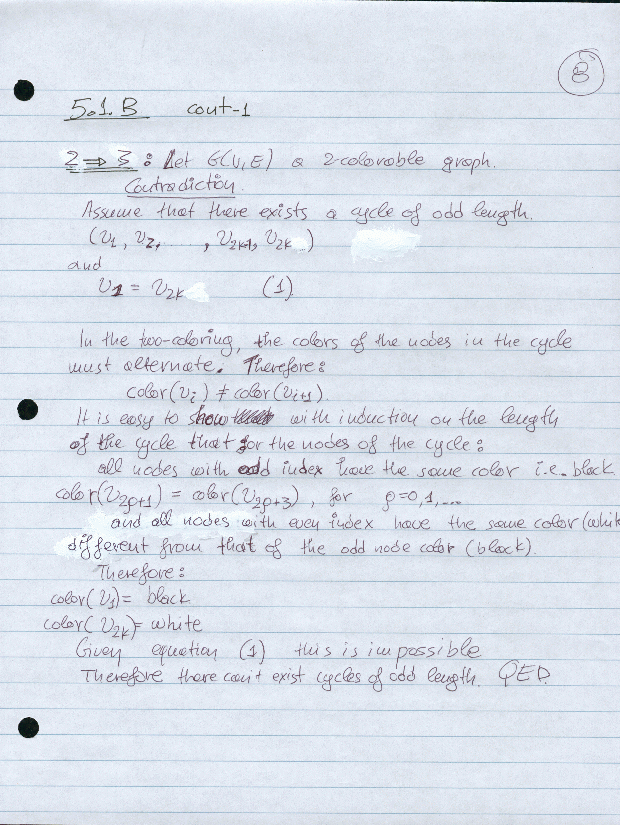 8
5.1.B cont-1
2 ⇒ 3 : Let G(V,E) a 2-colorable graph.
Contradiction.
Assume that there exists a cycle of odd length.
(v1, v2, ......., v2k-1, v2k )
and
v1 = v2k (1)
In the two-coloring, the colors of the nodes in the cycle
must alternate. Therefore:
color(vi) ≠ color(vi+1).
It is easy to show with induction on the length
of the cycle that for the nodes of the cycle:
all nodes with odd index have the same color i.e. black
color(v2ρ+1) = color(v2ρ+3), for ρ=0,1,...
and all nodes with even index have the same color (white
different from that of the odd node color (black).
Therefore:
color(v1)= black
color(v2k)= white
Given equation (1) this is impossible
Therefore there can't exist cycles of odd length. QED.